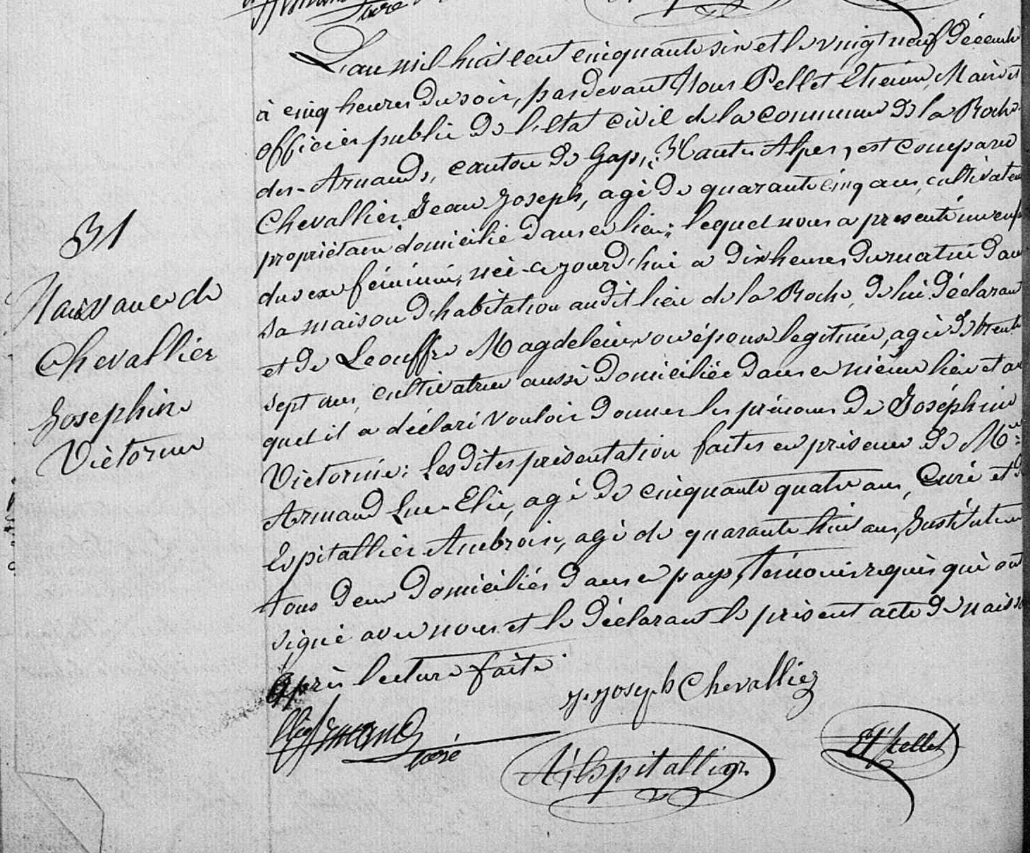 31
Naissance de
Chevallier
Joséphine
Victorine
L'an mil huit cent cinquante six et le vingt neuf décembre
à cinq heures du soir, pardevant Nous Pellet Etienne, Maire et
officier public de l'état civil de la commune de la Roche-
des-Arnauds, canton de Gap, Hautes Alpes, est comparu
Chevallier Jean Joseph, agé de quarante cinq ans, cultivateur
propriétaire domicilié dans ce lieu; lequel nous a présenté un enfant
du sexe féminin, née ce jourd'hui à dix heures du matin dans
sa maison d'habitation audit lieu de la Roche, de lui déclarant
et de Leouffre Magdeleine son épouse legitime, agée de trente
sept ans, cultivatrice aussi domiciliée dans ce même lieu et au
quel il a déclaré vouloir donner les prénoms de Joséphine
Victorine: Lesdites présentation faites en présence de Mre
Armand Luc-Elie, agé de cinquante quatre ans, Curé et d'
Espitallier Ambroise, agé de quarante huit ans, Instituteur
tous deux domiciliés dans ce pays, témoins requis qui ont
signé avec nous et le déclarant le présent acte de naissance
Après lecture faite.
J. Joseph Chevallier
Armand
Curé
A. Espitallier
Et. Pellet